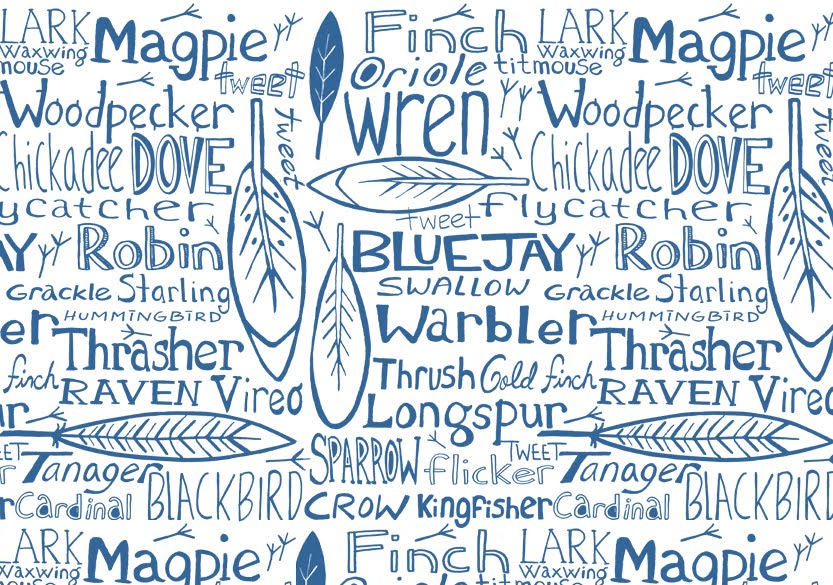 LARK Magpie Finch LARK Magpie
Waxwing Waxwing
mouse Oriole titmouse
tweet tweet
Woodpecker wren Woodpecker
tweet tweet
Chickadee DOVE Chickadee DOVE
ycatcher tweet flycatcher
AY Robin BLUEJAY Robin
Grackle Starling SWALLOW Grackle Starling
HUMMINGBIRD HUMMINGBIRD
er Thrasher Warbler Thrasher
finch Thrush Gold finch
RAVEN Vireo RAVEN Vireo
ur Longspur
EET TWEET
r Tanager SPARROW flicker Tanager
r Cardinal BLACKBIRD CROW Kingfisher Cardinal BLACKBIRD
LARK Magpie Finch LARK Magpie
Waxwing Waxwing
mouse Oriole titmouse